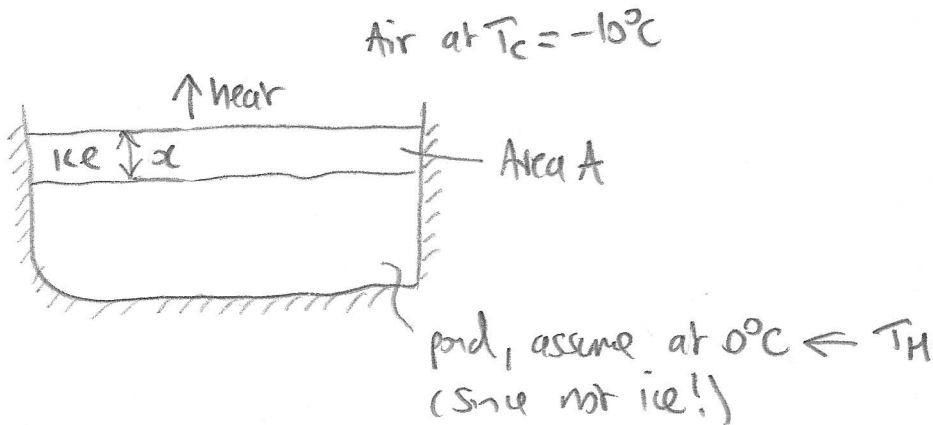 Air at T_C = -10°C
↑ heat
ice ↕ x
Area A
pond, assume at 0°C ← T_H
(since not ice!)